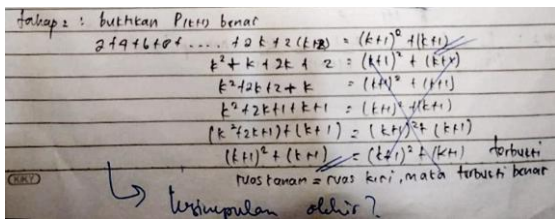 tahap 2 : buktikan P(k+1) benar
2+4+6+8+ .... + 2k + 2(k+1) = (k+1)² + (k+1)
k² + k + 2k + 2 = (k+1)² + (k+1)
k² + 2k + 2 + k = (k+1)² + (k+1)
k² + 2k + 1 + k + 1 = (k+1)² + (k+1)
(k² + 2k + 1) + (k + 1) = (k+1)² + (k+1)
(k+1)² + (k+1) = (k+1)² + (k+1) terbukti
KKY ruas kanan = ruas kiri, maka terbukti benar
kesimpulan akhir?